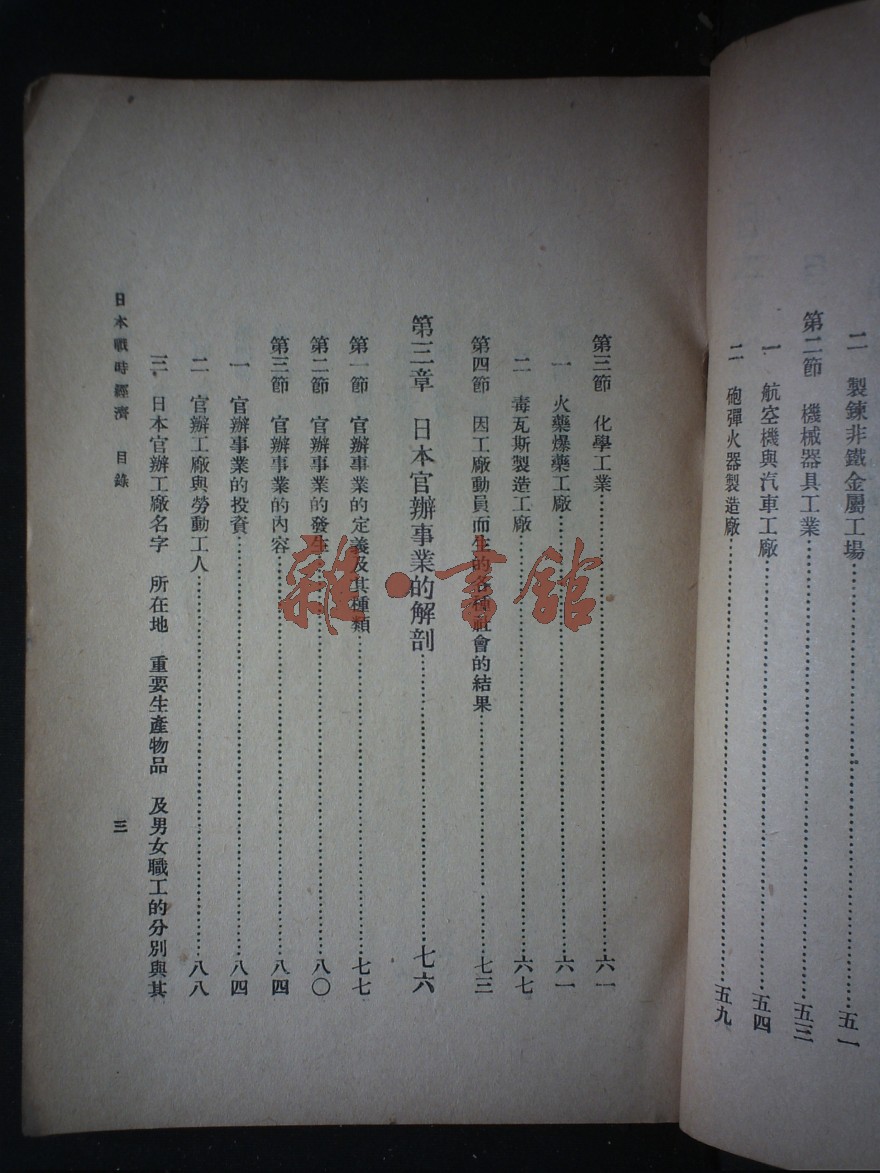 二 製鍊非鐵金屬工場……五一
第二節 機械器具工業……五三
一 航空機與汽車工廠……五四
二 砲彈火器製造廠……五九
第三節 化學工業……六一
一 火藥爆藥工廠……六一
二 毒瓦斯製造工廠……六七
第四節 因工廠動員而生的各種社會的結果……七三
第三章 日本官辦事業的解剖……七六
第一節 官辦事業的定義及其種類……七七
第二節 官辦事業的發生……八〇
第三節 官辦事業的內容……八四
一 官辦事業的投資……八四
二 官辦工廠與勞動工人……八八
三 日本官辦工廠名字 所在地 重要生產物品 及男女職工的分別與其
日本戰時經濟 目錄
三
雜·書館